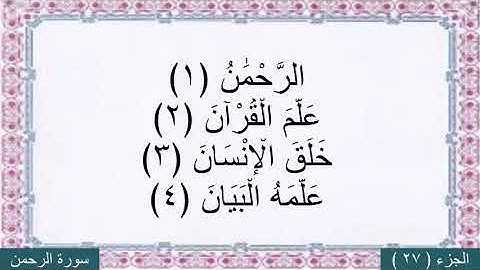 الرَّحْمَٰنُ (١)
عَلَّمَ الْقُرْآنَ (٢)
خَلَقَ الْإِنْسَانَ (٣)
عَلَّمَهُ الْبَيَانَ (٤)
الجزء ( ٢٧ )
سورة الرحمن